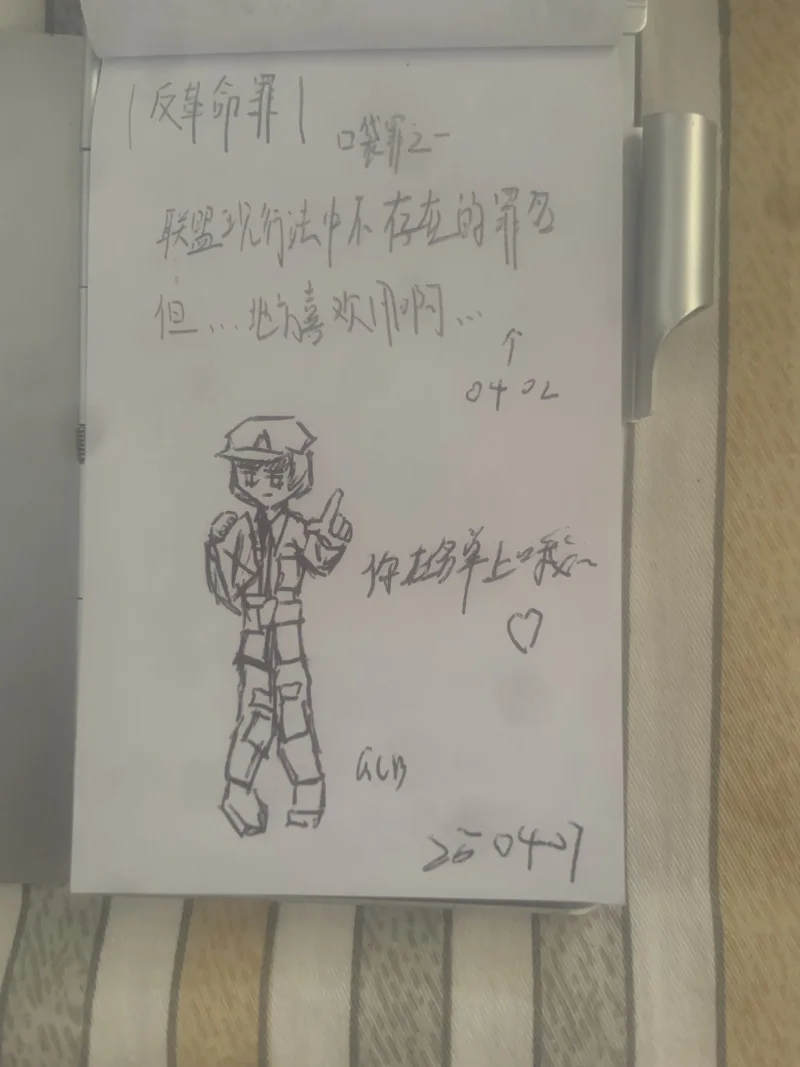 |反革命罪|
口袋罪之一
联盟现行法中不存在的罪名
但...北方喜欢用啊...
↑
0402
你在名单上哦~
♡
GCB
250407